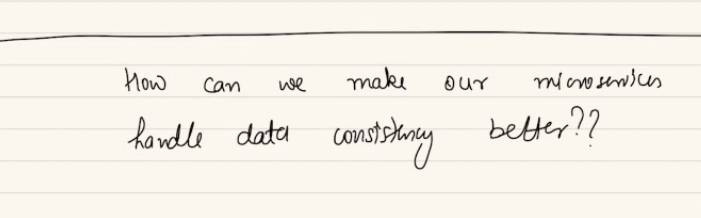 How can we make our microservices
handle data consistency better??